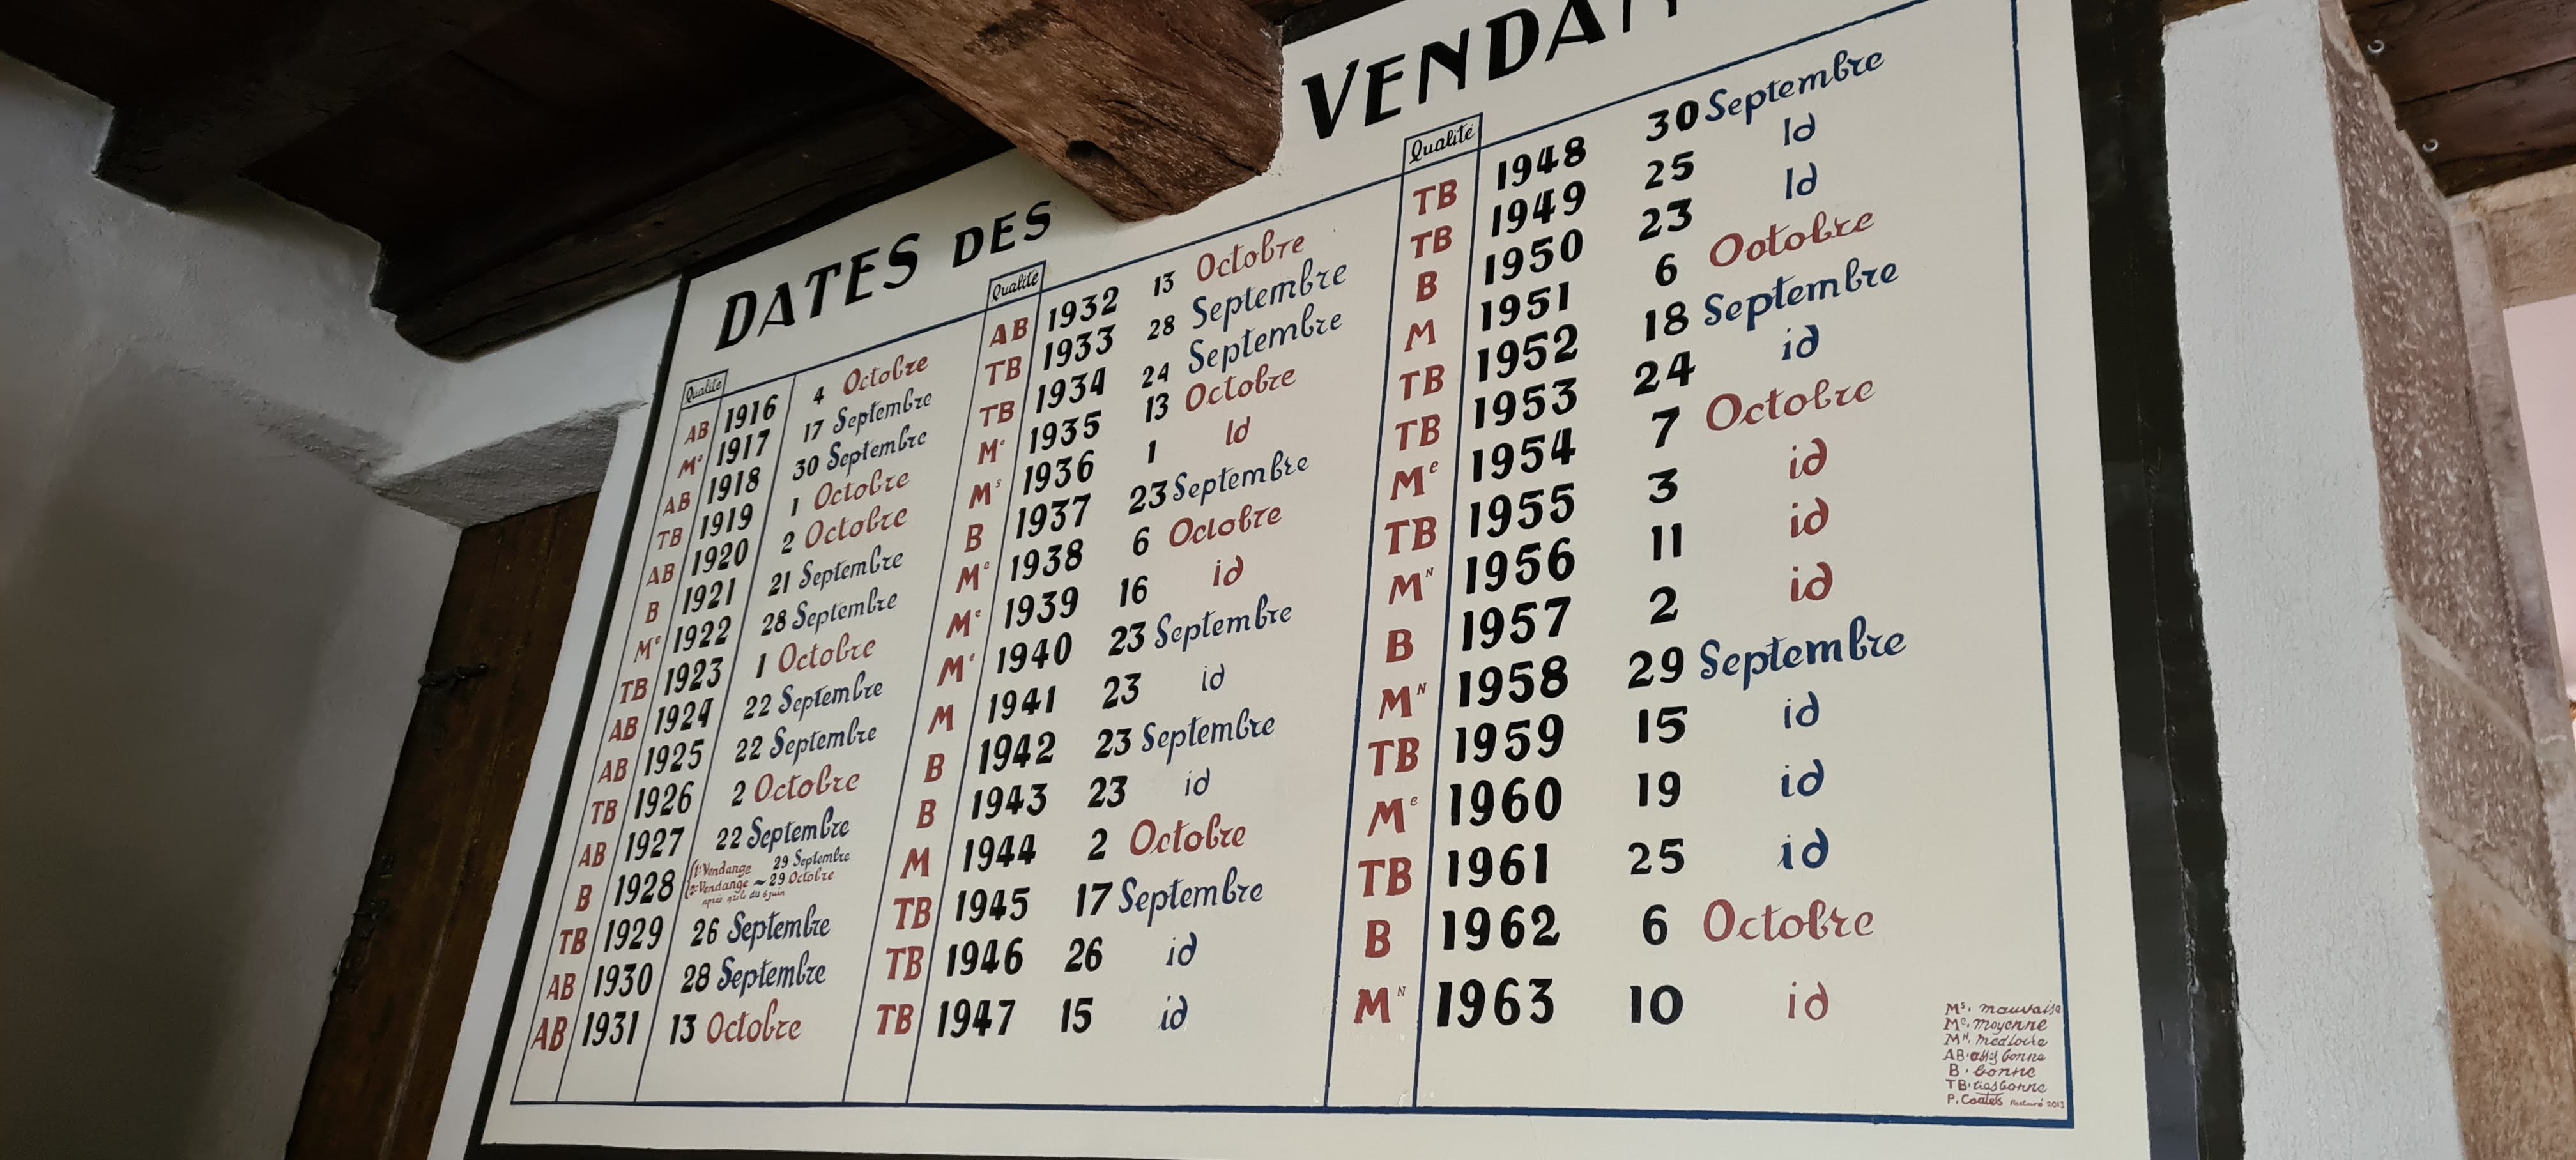 DATES DES VENDA
Qualité
AB 1916 4 Octobre
Mᵉ 1917 17 Septembre
AB 1918 30 Septembre
TB 1919 1 Octobre
AB 1920 2 Octobre
B 1921 21 Septembre
Mᵉ 1922 28 Septembre
TB 1923 1 Octobre
AB 1924 22 Septembre
AB 1925 22 Septembre
TB 1926 2 Octobre
AB 1927 22 Septembre
B 1928 1ᵉ Vendange 29 Septembre
2ᵉ Vendange ~ 29 Octobre
après grêle du 6 juin
TB 1929 26 Septembre
AB 1930 28 Septembre
AB 1931 13 Octobre
Qualité
AB 1932 13 Octobre
TB 1933 28 Septembre
TB 1934 24 Septembre
Mᵉ 1935 13 Octobre
Mˢ 1936 1 Id
B 1937 23 Septembre
Mᵉ 1938 6 Octobre
Mᵉ 1939 16 id
Mᵉ 1940 23 Septembre
M 1941 23 id
B 1942 23 Septembre
B 1943 23 id
M 1944 2 Octobre
TB 1945 17 Septembre
TB 1946 26 id
TB 1947 15 id
Qualité
TB 1948 30 Septembre
TB 1949 25 Id
B 1950 23 Id
M 1951 6 Octobre
TB 1952 18 Septembre
TB 1953 24 id
Mᵉ 1954 7 Octobre
TB 1955 3 id
Mᴺ 1956 11 id
B 1957 2 id
Mᴺ 1958 29 Septembre
TB 1959 15 id
Mᵉ 1960 19 id
TB 1961 25 id
B 1962 6 Octobre
Mᴺ 1963 10 id
Mˢ. mauvaise
Mᵉ. moyenne
Mᴺ. mediocre
AB. assez bonne
B. bonne
TB. tres bonne
P. Coates Restauré 2013